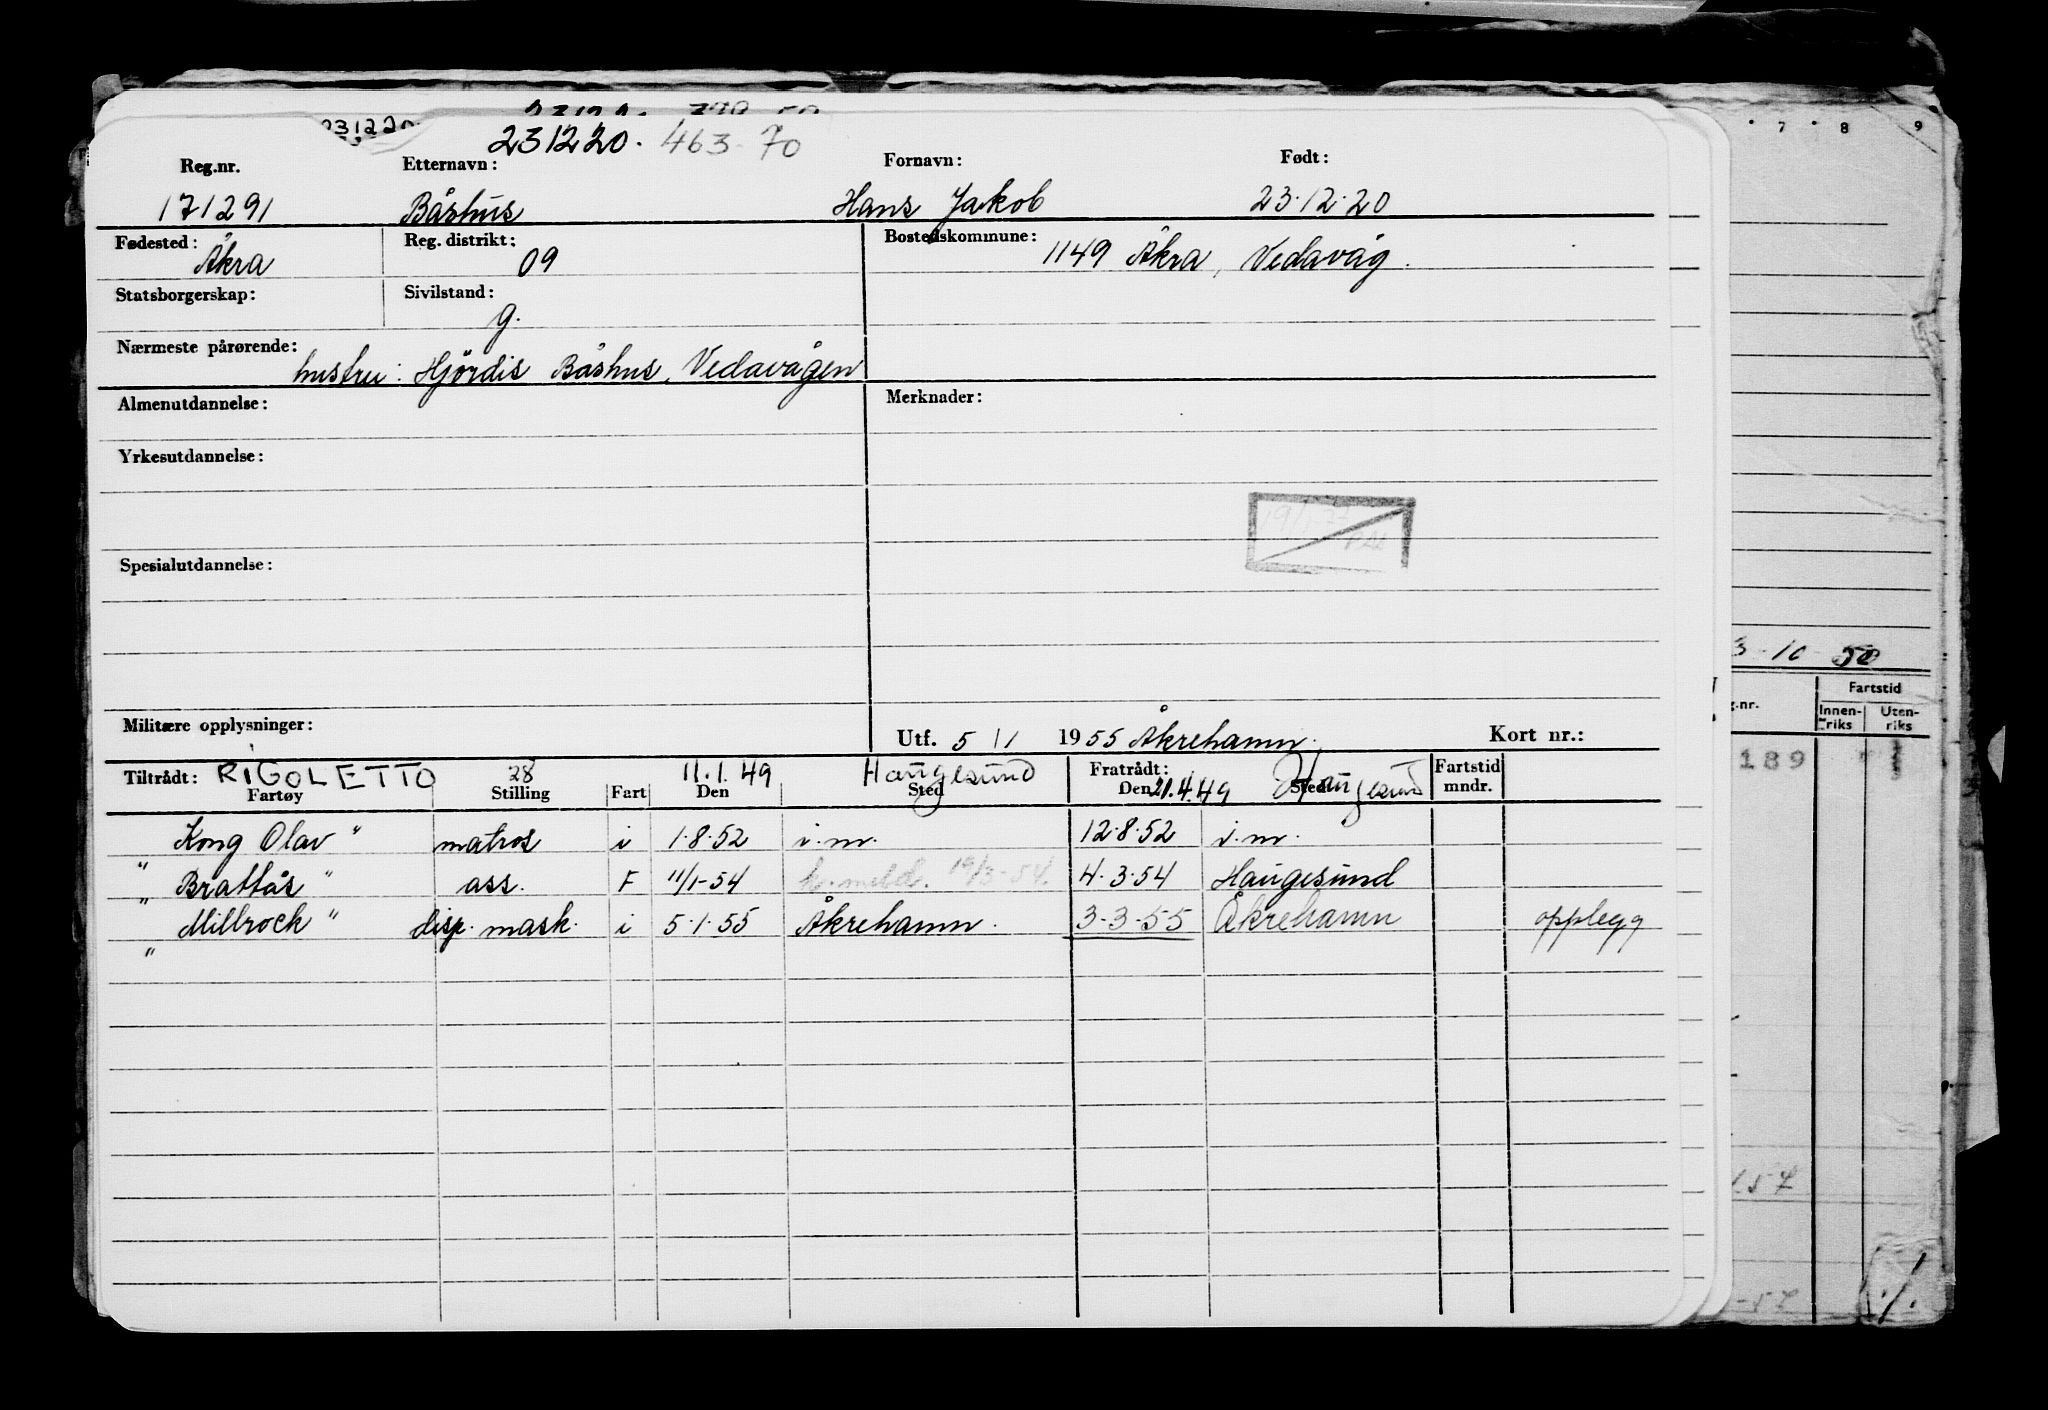 231220. 463-70
Reg.nr. Etternavn: Fornavn: Født:
171291 Båshus Hans Jakob 23.12.20
Fødested: Åkra Reg. distrikt: 09 Bostedskommune: 1149 Åkra, Vedavåg.
Statsborgerskap: Sivilstand: g.
Nærmeste pårørende: hustru: Hjørdis Båshus, Vedavågen
Almenutdannelse: Merknader:
Yrkesutdannelse:
Spesialutdannelse:
Militære opplysninger: Utf. 5/1 1955 Åkrehamn. Kort nr.:
Tiltrådt: RIGOLETTO 28 11.1.49 Haugesund Fratrådt: 21.4.49 Haugesund Fartstid
Fartøy Stilling Fart Den Sted Den Sted mndr.
"Kong Olav" matros i 1.8.52 i.m. 12.8.52 i.m.
"Brattås" ass. F 11/1-54 h. meld. 19/3-54. 4.3.54 Haugesund
"Millrock" disp. mask. i 5.1.55 Åkrehamn. 3-3-55 Åkrehamn opplegg
"
231220
7 8 9
3-10-50
Fartstid
g.nr. Innen-riks Uten-riks
189